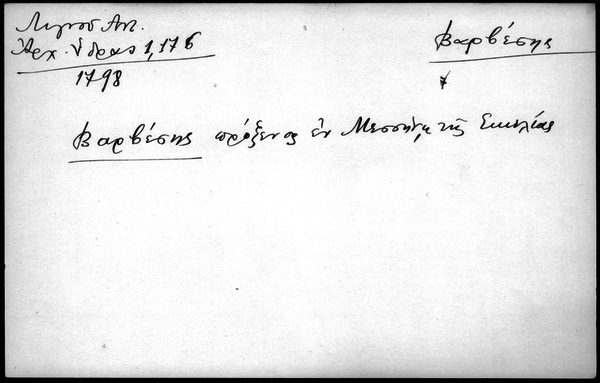 Λιγνού Αντ.
Αρχ. Ύδρας 1, 176
1798
Βαρβέσης
Βαρβέσης πρόξενος εν Μεσσήνη της Σικελίας